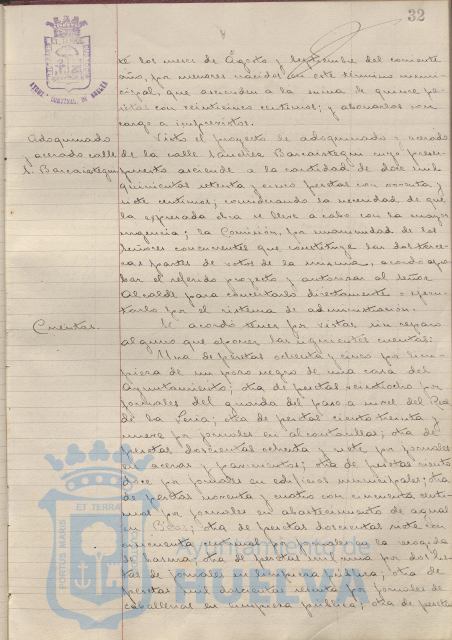 32
de los meses de Agosto y Septiembre del corriente
año, por menores nacidos en este término muni-
cipal, que ascienden a la suma de quince pe-
setas con veinticinco centimos; y abonarlos con
cargo a imprevistos.
Adoquinado y acerado calle S. Barcaiztegui
Visto el proyecto de adoquinado y acerado
de la calle Sanchez Barcaiztegui cuyo presu-
puesto asciende a la cantidad de dos mil
quinientas setenta y cinco pesetas con noventa y
siete centimos; considerando la necesidad de que
la expresada obra se lleve a cabo con la mayor
urgencia; la Comisión, por unanimidad de los
Señores concurrentes que constituye las dos terce-
ras partes de votos de la misma, acordó apro-
bar el referido proyecto y autorizar al Señor
Alcalde para concertarlo directamente o ejecu-
tarlo por el sistema de administración.
Cuentas.
Se acordó tener por vistas sin reparo
alguno que oponer las siguientes cuentas:
Una de pesetas ochenta y cinco por lim-
pieza de un pozo negro de una casa del
Ayuntamiento; otra de pesetas veintiocho por
jornales del guarda del paso a nivel del
de la Feria; otra de pesetas ciento treinta y
nueve por jornales en alcantarillas; otra de
pesetas doscientas ochenta y siete por jornales
en aceras y pavimentos; otra de pesetas ciento
doce por jornales en edificios municipales; otra
de pesetas noventa y cuatro con cincuenta centi-
mos por jornales en abastecimiento de aguas
en otra de pesetas doscientas siete con
cincuenta centimos por jornales en la recogida
de basura; otra de pesetas mil una por
de jornales en limpieza pública; otra de
pesetas mil doscientas por jornales de
caballerias en limpieza pública; otra de pesetas
Ayuntamiento de
HUELVA
PORTUS MARIS ET TERRA